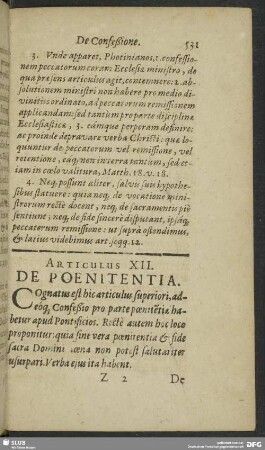 De Confeßione.
531
3. Vnde apparet, Photinianos, 1. confeßio-
nem peccatorum coram Ecclesiæ ministro, de
qua præsens articulus agit, contemnere: 2. ab-
solutionem ministri non habere pro medio di-
vinitùs ordinato, ad peccatorum remissionem
applicandam: sed tantùm pro parte disciplinæ
Ecclesiasticæ, 3. eámque perperam definire:
ac proinde depravare verba Christi: quæ lo-
quuntur de peccatorum vel remissione, vel
retentione, eáq; non in terra tantùm, sed et-
iam in cœlo valitura, Matth. 18. v. 18.
4. Neq; possunt aliter, salvis suis hypothe-
sibus statuere: quia neq; de vocatione mini-
strorum rectè docent, neq; de sacramentis piè
sentiunt; neq; de fide sincerè disputant, ipsáq;
peccatorum remissione: ut suprà ostendimus,
& latiùs videbimus art. seqq. 12.
ARTICULUS XII.
DE POENITENTIA.
COgnatus est hic articulus superiori, ad-
eóq; Confeßio pro parte pœnitẽtiæ ha-
betur apud Pontificios. Rectè autem hoc loco
proponitur: quia sine vera pœnitentia & fide
sacra Domini cœna non potest salutariter
usurpari. Verba ejus ita habent.
Z 2
De
SLUB
DFG